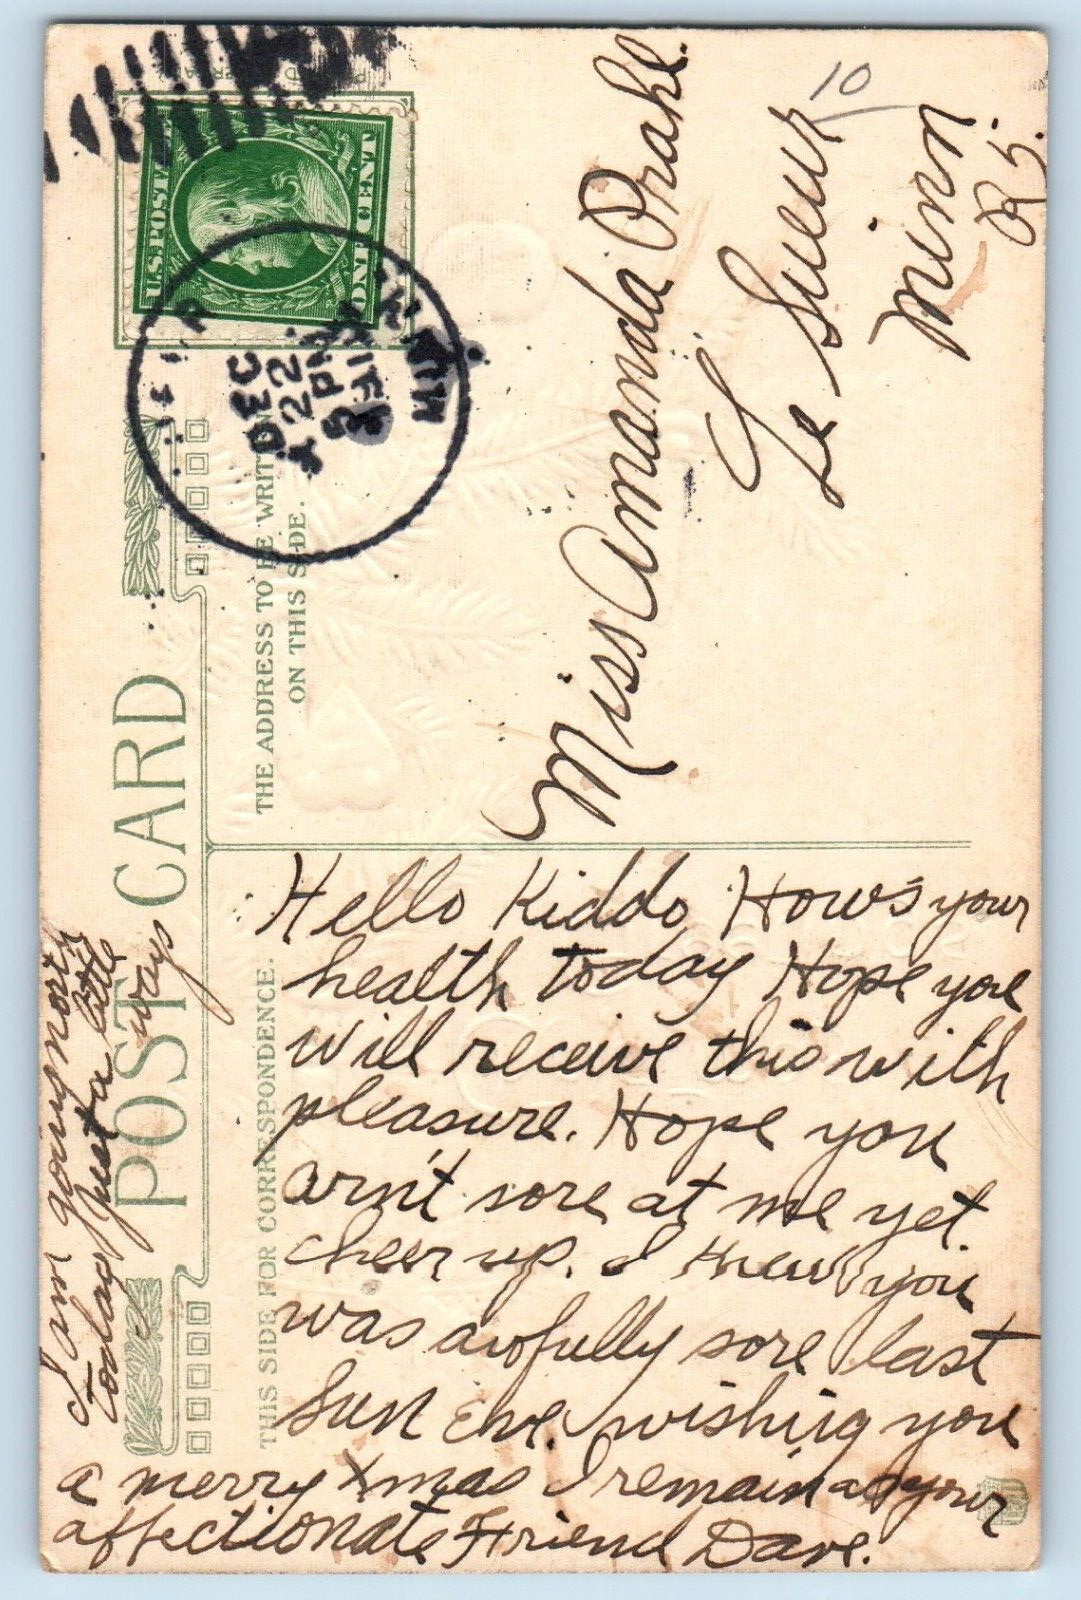 POST CARD
THE ADDRESS TO BE WRITTEN
ON THIS SIDE.
THIS SIDE FOR CORRESPONDENCE.
U.S. POSTAGE
ONE CENT
DEC
22
5 PM
MINN
10
Miss Amanda Prahl.
Le Sueur
Minn
R 5.
Hello Kiddo Hows your
health today Hope you
will receive this with
pleasure. Hope you
arn't sore at me yet.
cheer up. I knew you
was awfully sore last
Sun Eve. wishing you
a merry Xmas I remain as your
affectionate Friend Dave.
I am going north
today just a little
ways